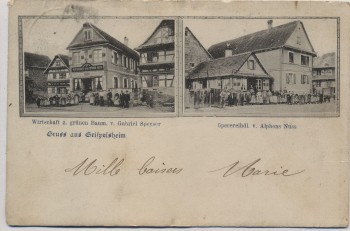 Wirtschaft z. grünen Baum, v. Gabriel Speyser
Spezereihdl. v. Alphons Nuss
Gruss aus Geispolsheim
Mille baisers Marie